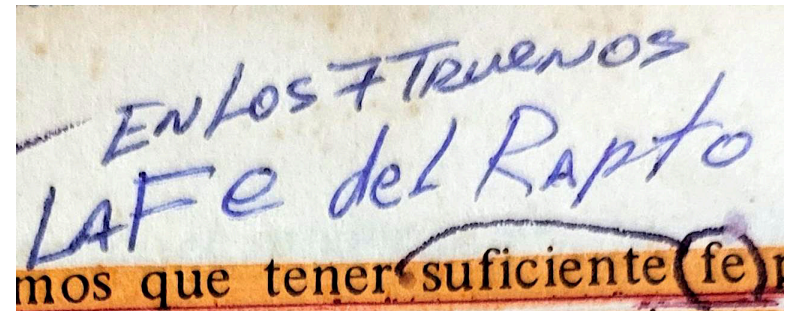 EN LOS 7 TRUENOS
LA Fe del RAPTO
mos que tener suficiente fe